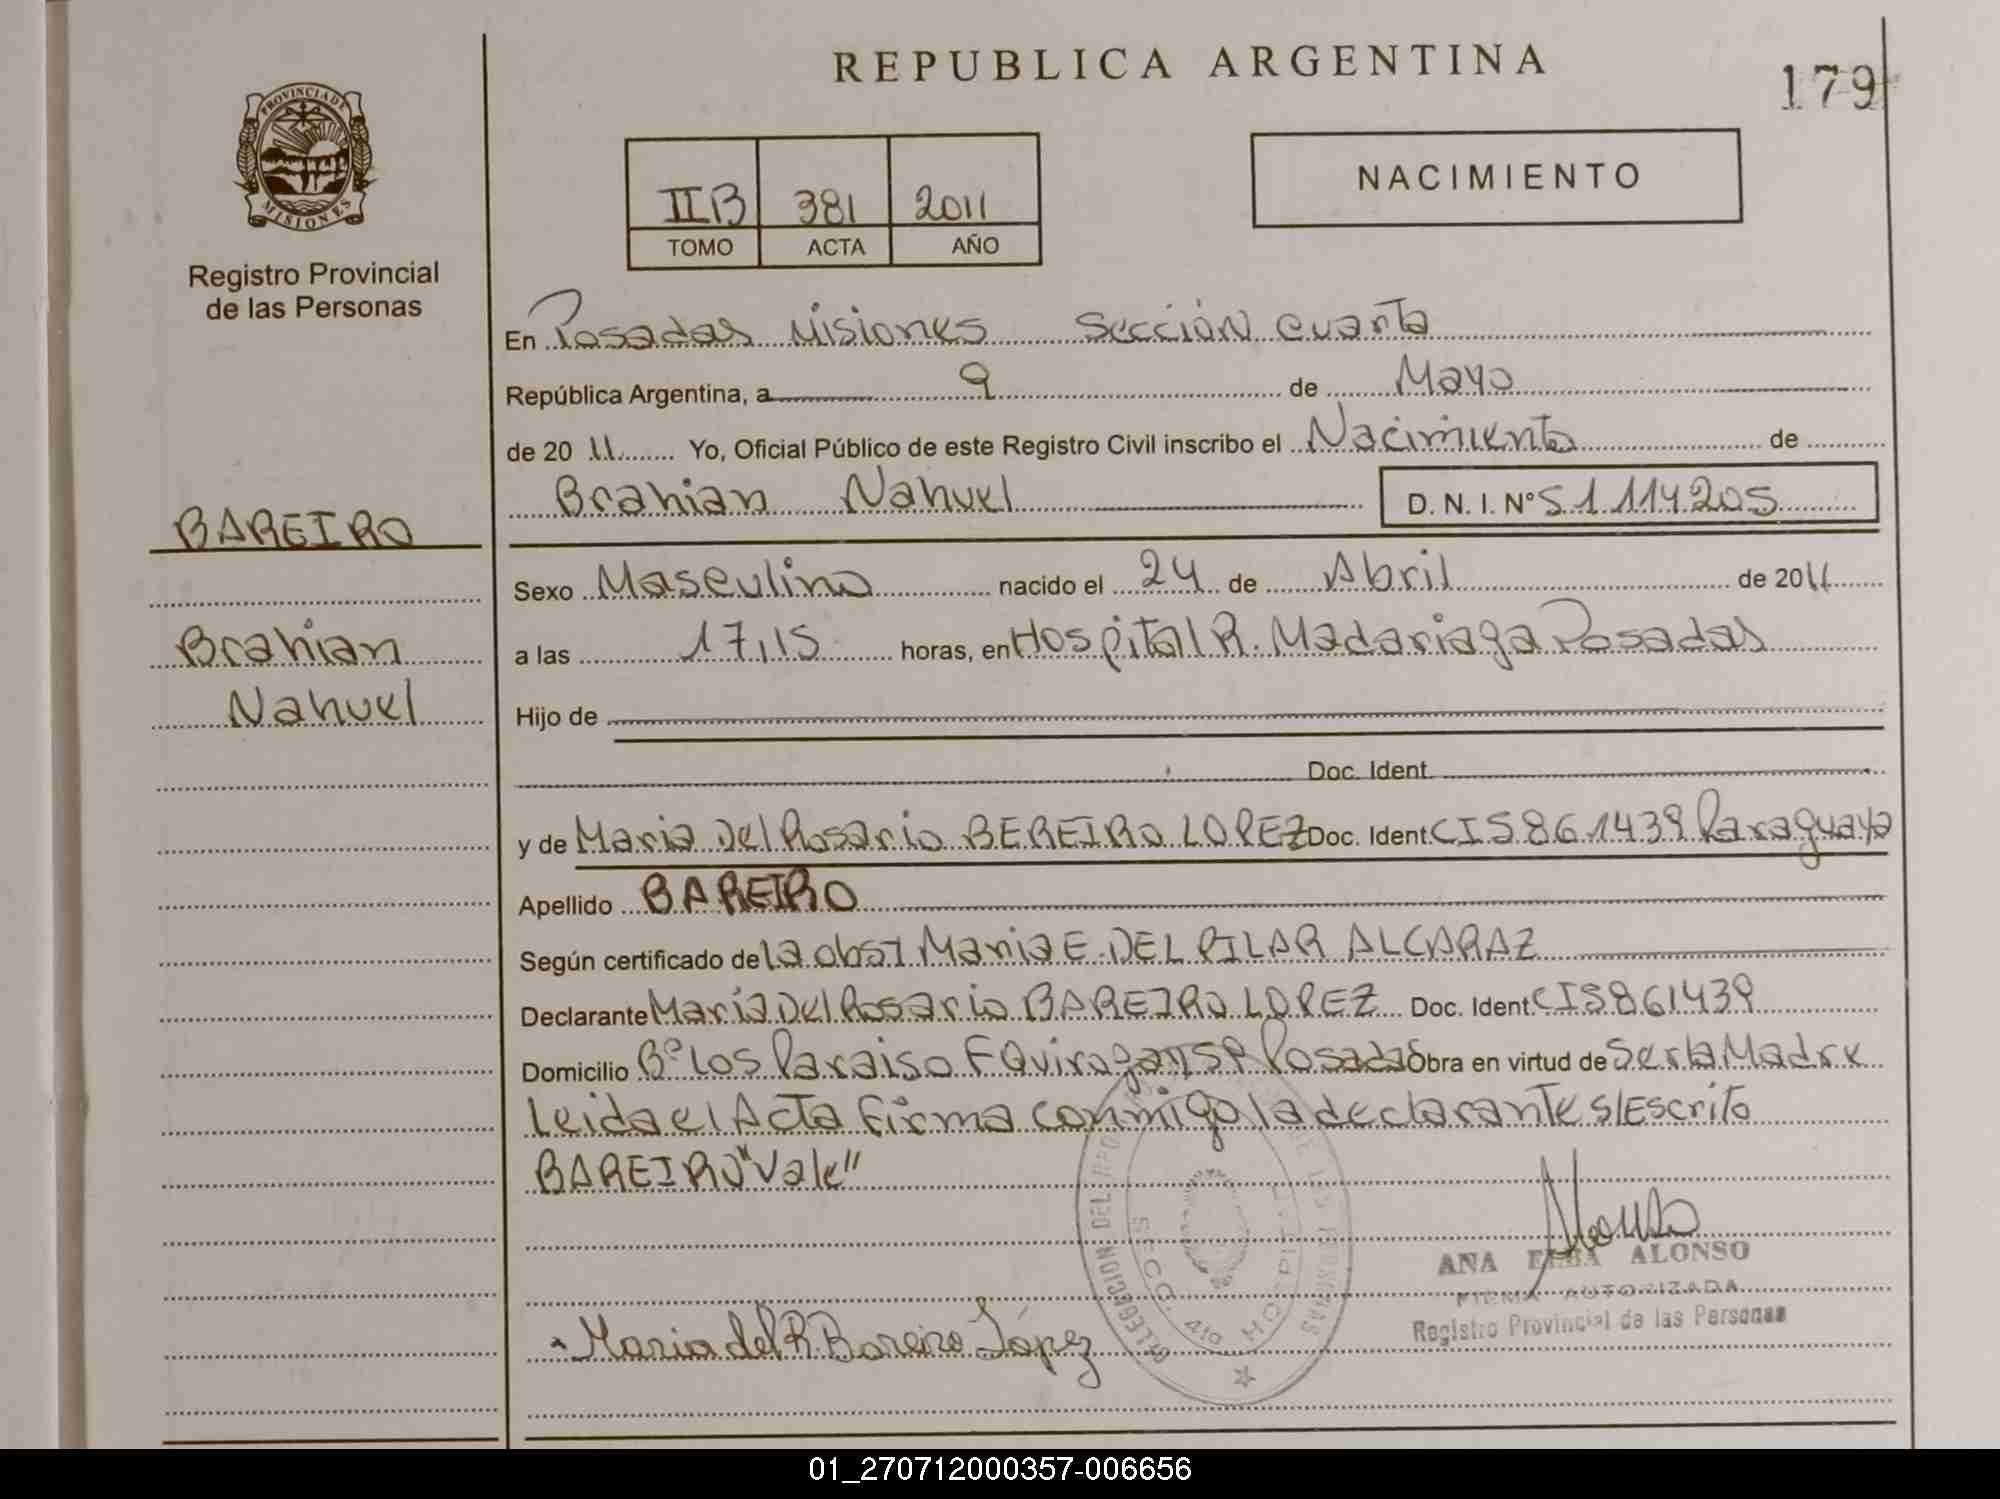 REPUBLICA ARGENTINA
179
PROVINCIA DE
MISIONES
Registro Provincial
de las Personas
II B 381 2011
TOMO ACTA AÑO
NACIMIENTO
En Posadas Misiones Sección cuarta
República Argentina, a 9 de Mayo
de 2011 Yo, Oficial Público de este Registro Civil inscribo el Nacimiento de
Brahian Nahuel D. N. I. Nº 51.114.205
BAREIRO
Brahian
Nahuel
Sexo Masculino nacido el 24 de Abril de 2011
a las 17,15 horas, en Hospital R. Madariaga Posadas
Hijo de
Doc. Ident.
y de Maria Del Rosario BEREIRO LOPEZ Doc. Ident. CI 5861439 Paraguaya
Apellido BAREIRO
Según certificado de la obst Maria E. DEL PILAR ALCARAZ
Declarante Maria Del Rosario BAREIRO LOPEZ Doc. Ident. CI 5861439
Domicilio Bº Los Paraiso F Quiroga Posadas Obra en virtud de Ser la Madre
Leida el Acta firma conmigo la declarante S/Escrito
BAREIRO "Vale"
DELEGACION DEL
DE LAS PERSONAS
SECC. 4ta HOSPITAL
ANA ELBA ALONSO
FIRMA AUTORIZADA
Registro Provincial de las Personas
Maria del R. Bareiro López
01_270712000357-006656